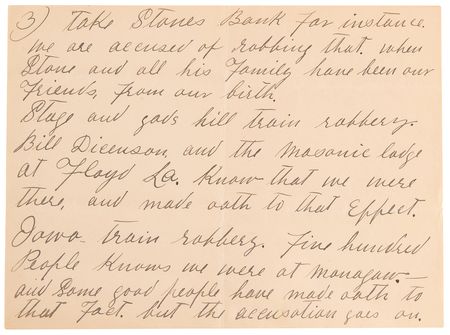 3) Take Stones Bank for instance.
we are accused of robbing that. when
Stone and all his Family have been our
Friends, From our birth.
Stage and gods hill train robbery.
Bill Dicenson, and the masonic lodge
at Floyd La. Know that we were
there, and made oath to that Effect.
Iowa train robbery. Five hundred
People Knows we were at monagaw
and Some good people have made oath to
that Fact. but the accusation goes on.